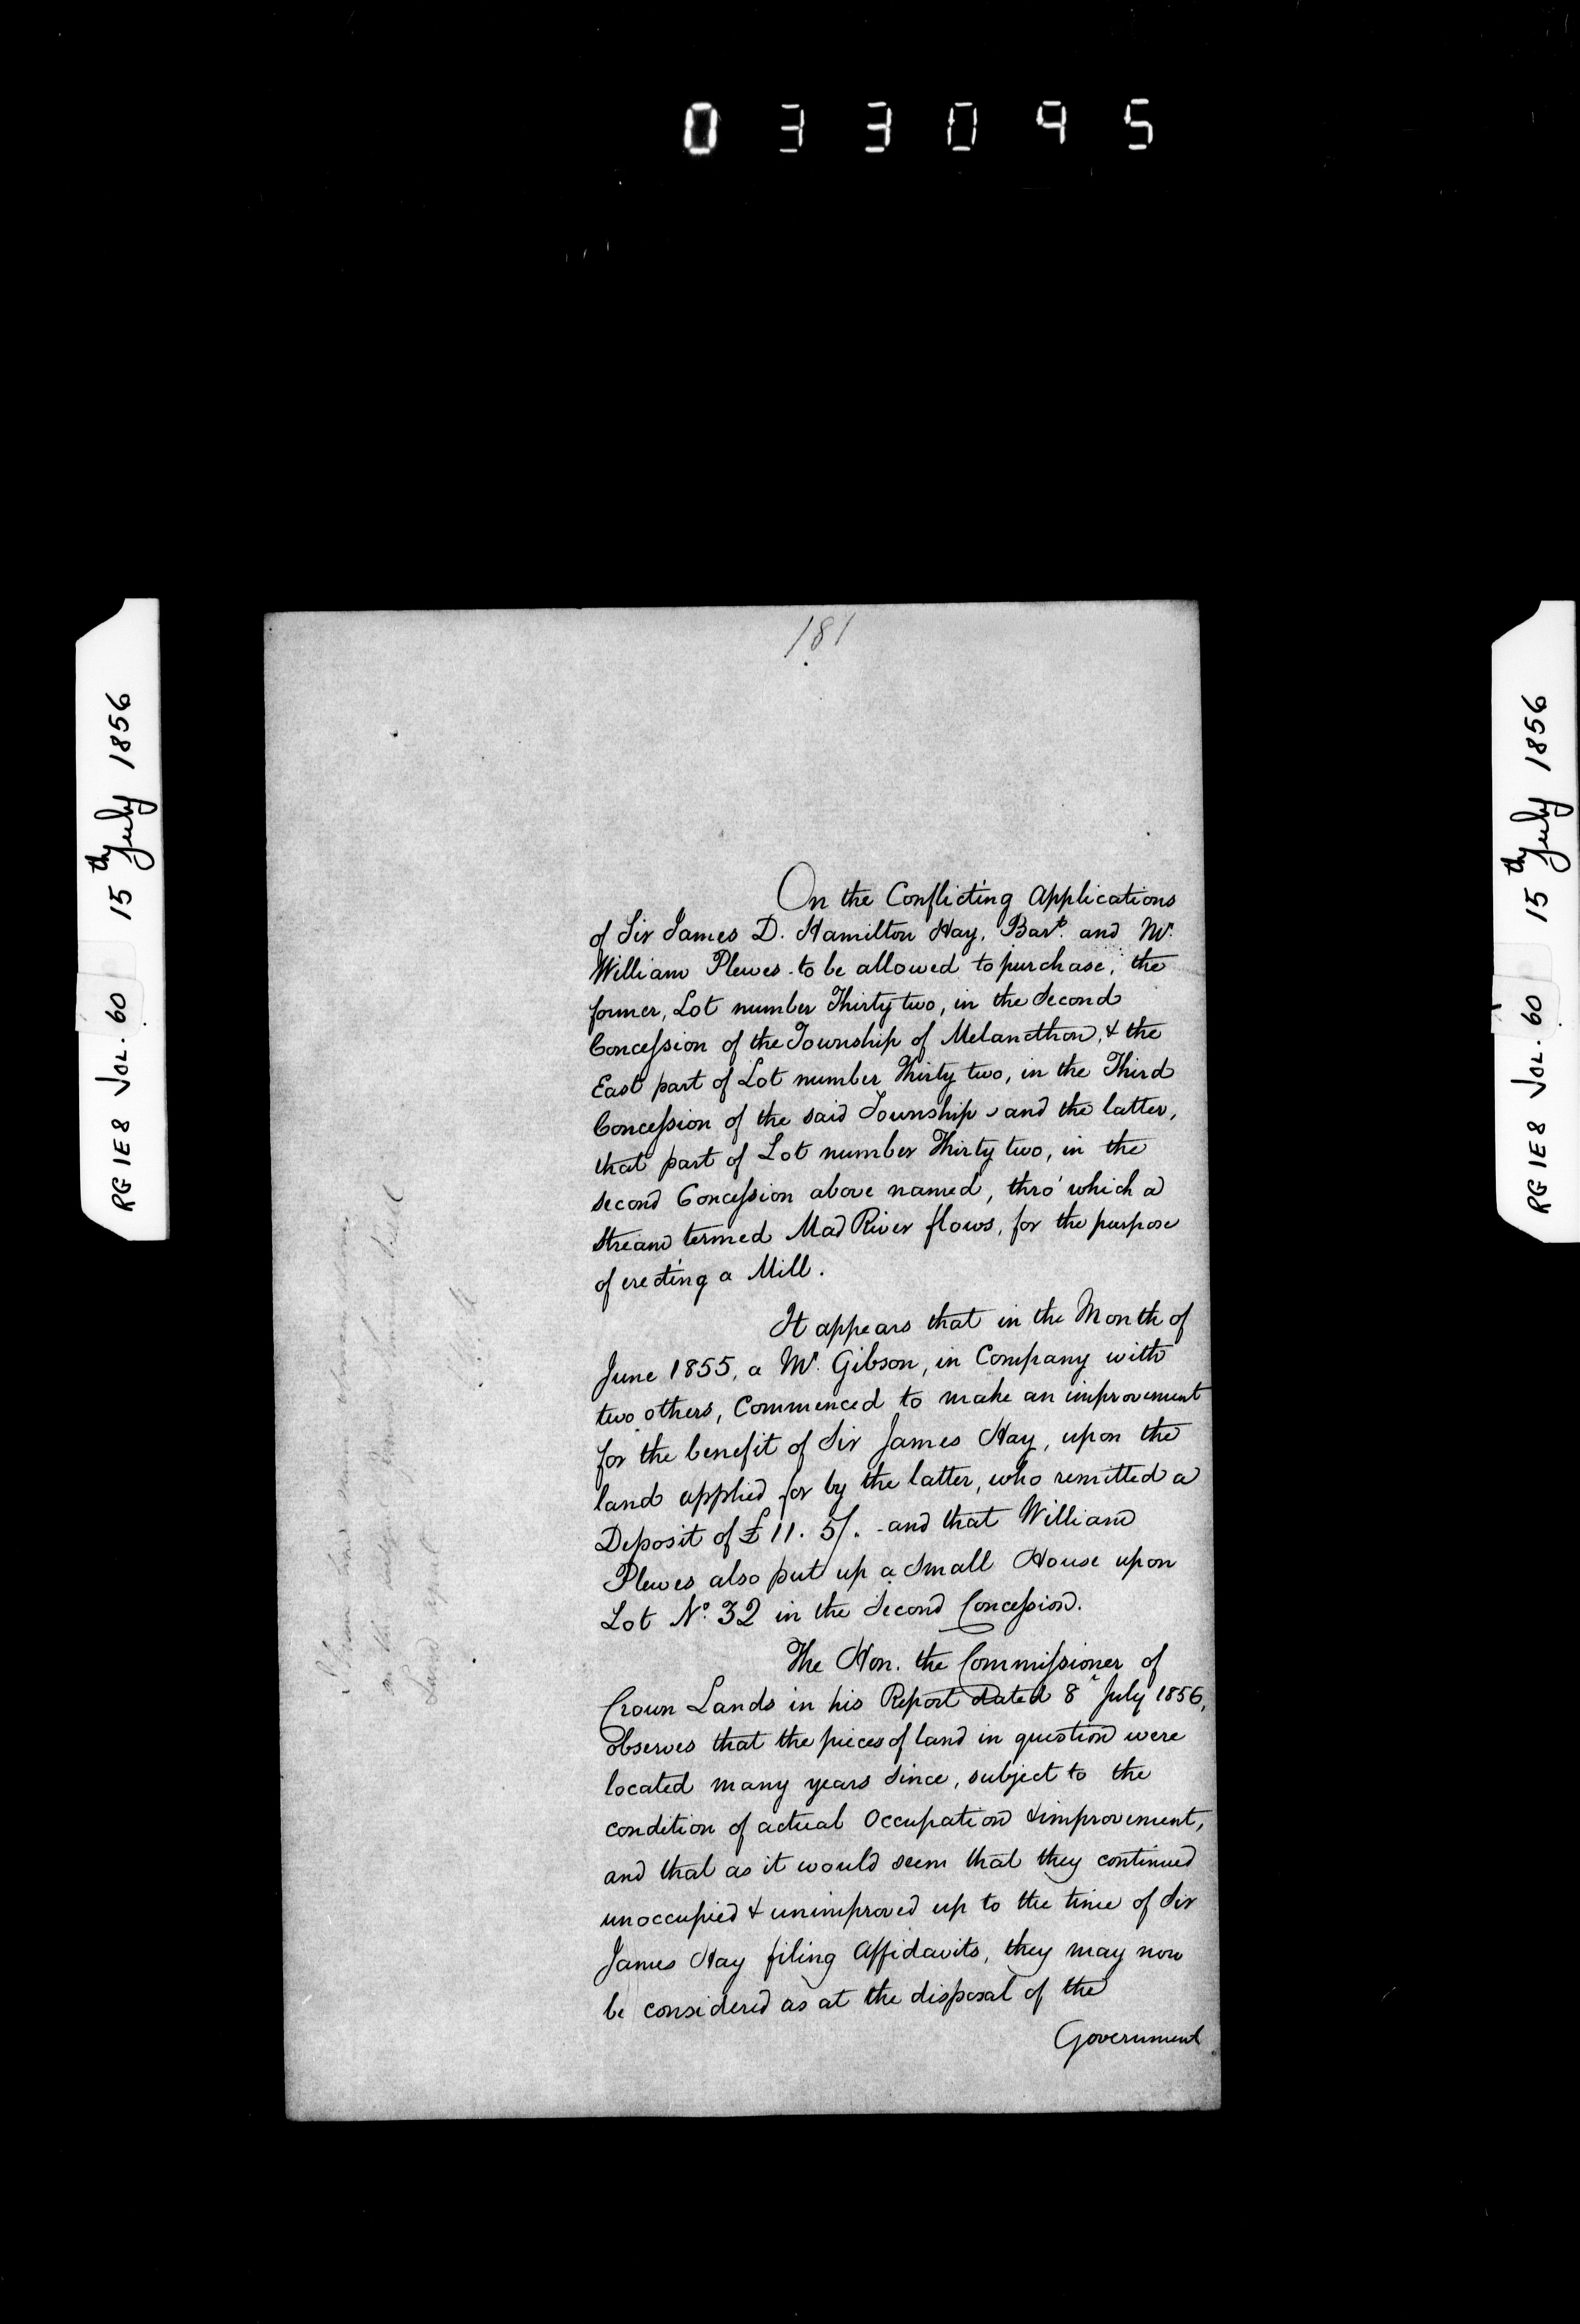 033095
RG 1E8 VOL. 60 15th July 1856
RG 1E8 VOL. 60 15th July 1856
181
On the Conflicting Applications
of Sir James D. Hamilton Hay, Bart. and Mr.
William Plewes to be allowed to purchase, the
former, Lot number Thirty two, in the Second
Concession of the Township of Melancthon, & the
East part of Lot number Thirty two, in the Third
Concession of the said Township, and the latter,
that part of Lot number Thirty two, in the
second Concession above named, thro' which a
stream termed Mad River flows, for the purpose
of erecting a Mill.
It appears that in the Month of
June 1855, a Mr. Gibson, in Company with
two others, Commenced to make an improvement
for the benefit of Sir James Hay, upon the
land applied for by the latter, who remitted a
Deposit of £11. 5/. - and that William
Plewes also put up a Small House upon
Lot No. 32 in the Second Concession.
The Hon. the Commissioner of
Crown Lands in his Report dated 8" July 1856,
observes that the pieces of land in question were
located many years since, subject to the
condition of actual Occupation & improvement,
and that as it would seem that they continued
unoccupied & unimproved up to the time of Sir
James Hay filing Affidavits, they may now
be considered as at the disposal of the
Government